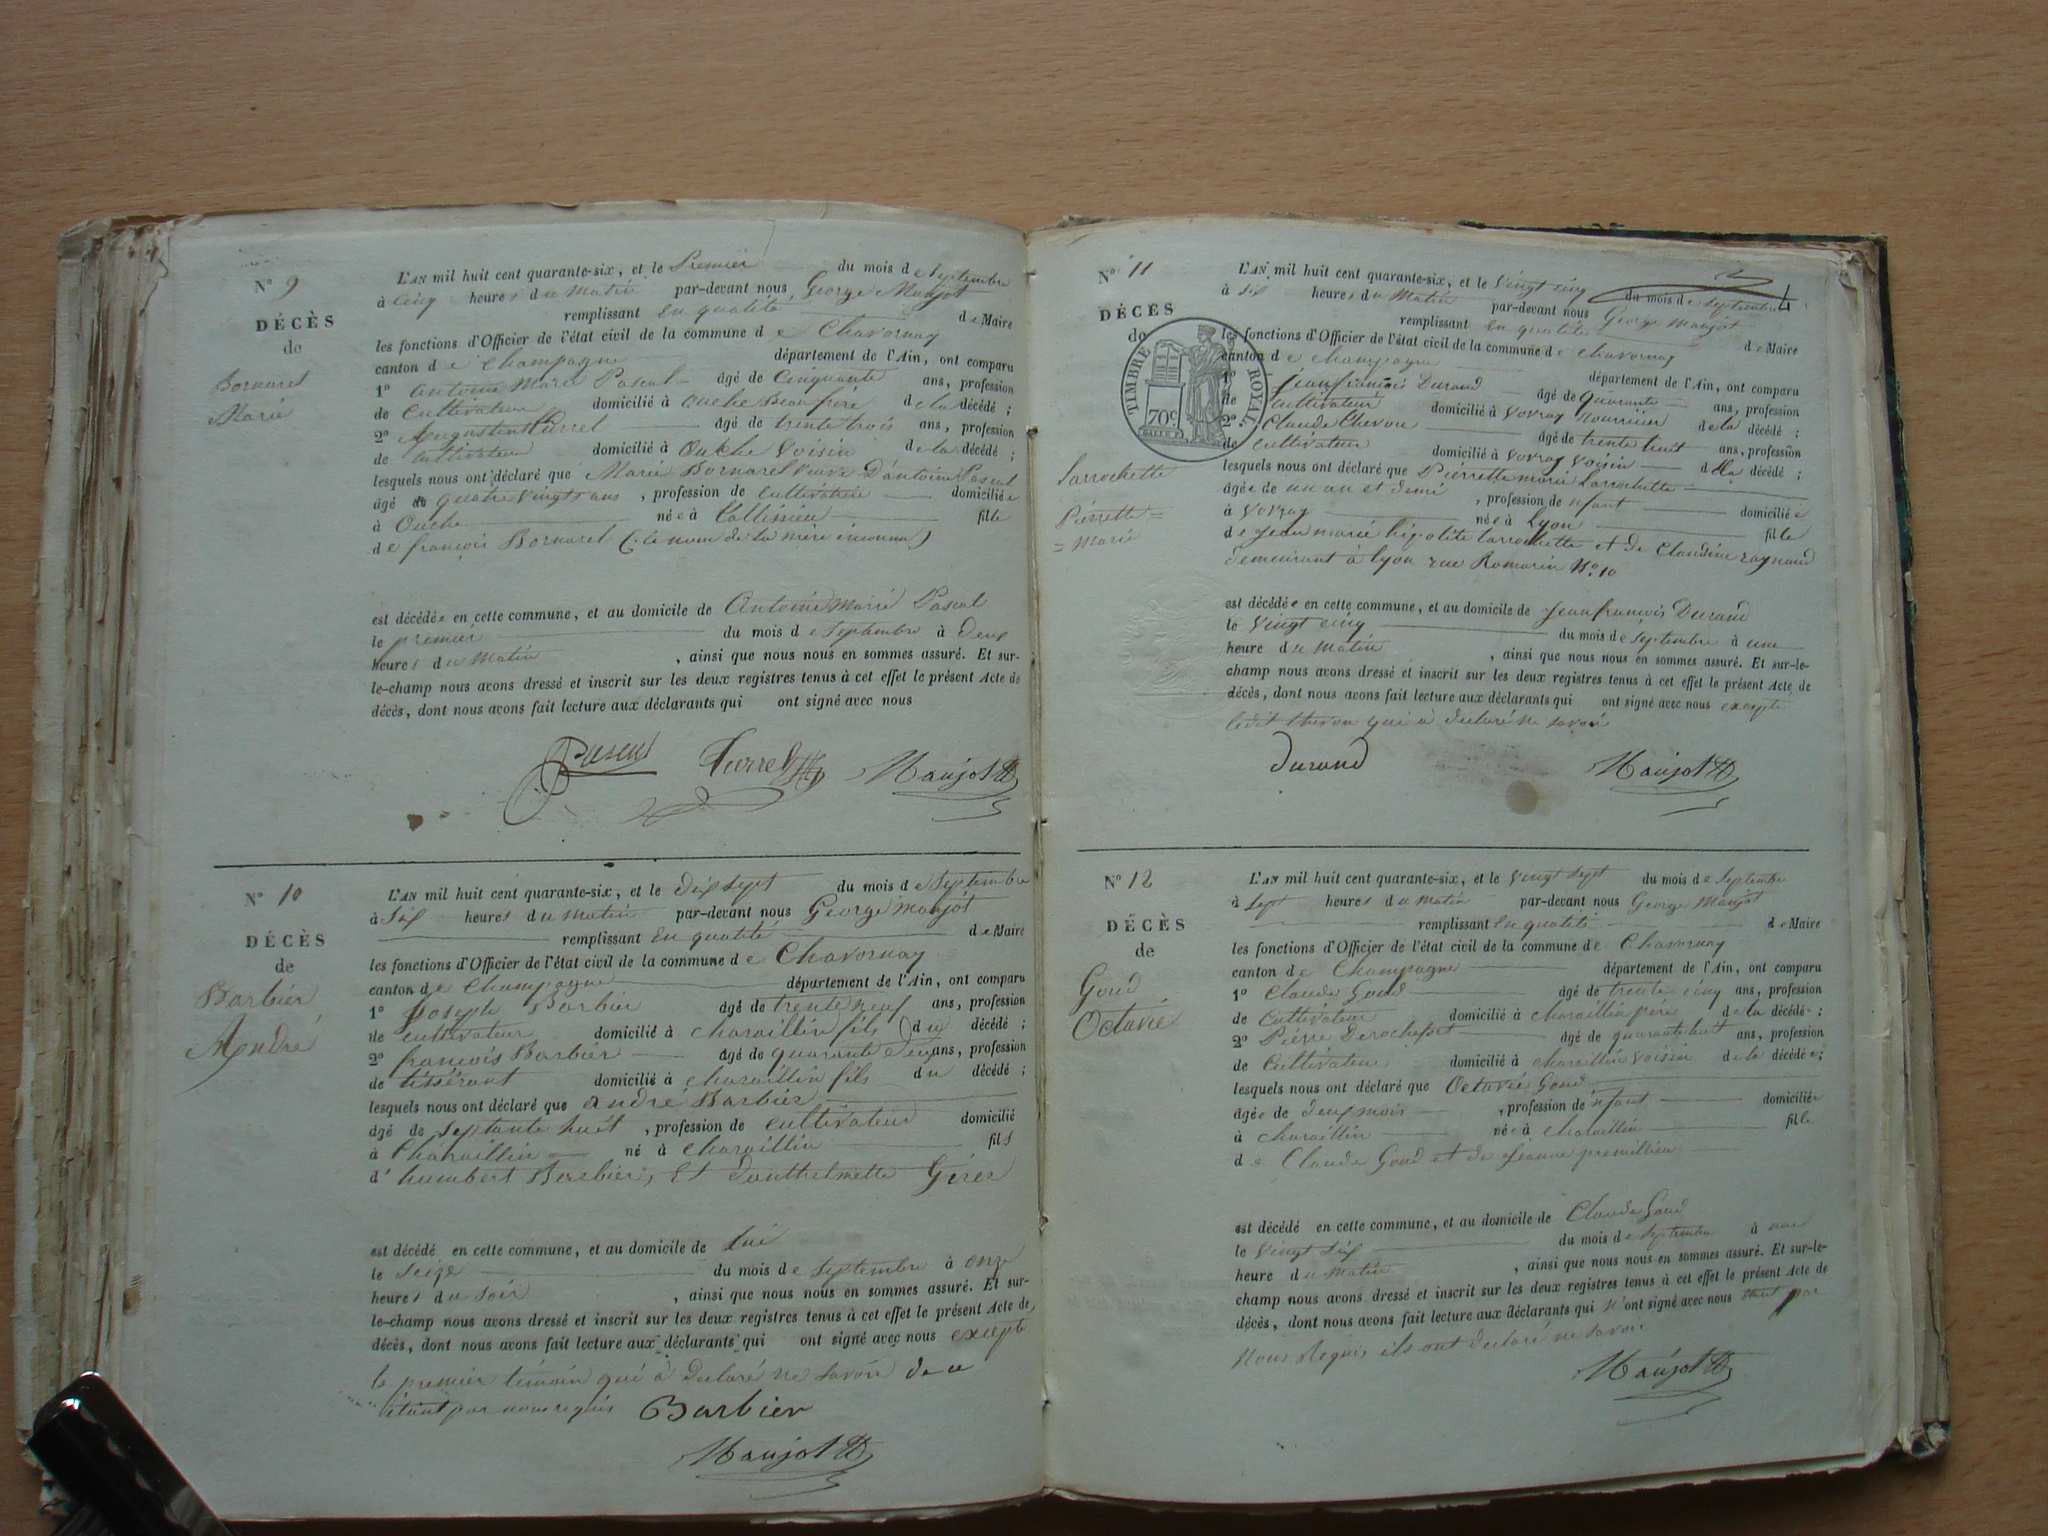 N° 9
DÉCÈS
de
Bornarel
Marie
L'AN mil huit cent quarante-six, et le Premier du mois de Septembre
à Cinq heures du Matin par-devant nous George Maujot
remplissant en qualité de Maire
les fonctions d'Officier de l'état civil de la commune de Chavornay
canton de Champagne département de l'Ain, ont comparu
1° Antoine Marie Pascal âgé de Cinquante ans, profession
de Cultivateur domicilié à Ouche Beau frère de la décédé ;
2° Augustin Turrel âgé de trente trois ans, profession
de Cultivateur domicilié à Ouche Voisin de la décédé ;
lesquels nous ont déclaré que Marie Bornarel veuve D'antoine Pascal
âgé de quatre vingts ans, profession de Cultivateur domiciliée
à Ouche née à fille
de françois Bornarel (le nom de la mère inconnu)
est décédée en cette commune, et au domicile de Antoine Marie Pascal
le premier du mois de Septembre à deux
heures du Matin, ainsi que nous nous en sommes assuré. Et sur-
le-champ nous avons dressé et inscrit sur les deux registres tenus à cet effet le présent Acte de
décès, dont nous avons fait lecture aux déclarants qui ont signé avec nous
Pascal Turrel Maujot
N° 10
DÉCÈS
de
Barbier
André
L'AN mil huit cent quarante-six, et le Dix sept du mois de Septembre
à Six heures du Matin par-devant nous George Maujot
remplissant en qualité de Maire
les fonctions d'Officier de l'état civil de la commune de Chavornay
canton de Champagne département de l'Ain, ont comparu
1° Joseph Barbier âgé de trente neuf ans, profession
de cultivateur domicilié à Charaillin fils du décédé ;
2° françois Barbier âgé de quarante deux ans, profession
de tisserant domicilié à Charaillin fils du décédé ;
lesquels nous ont déclaré que André Barbier
âgé de septante huit, profession de cultivateur domicilié
à Charaillin né à Charaillin fils
d'humbert Barbier, Et d'anthelmette
est décédé en cette commune, et au domicile de Lui
le Seize du mois de Septembre à onze
heures du Soir, ainsi que nous nous en sommes assuré. Et sur-
le-champ nous avons dressé et inscrit sur les deux registres tenus à cet effet le présent Acte de
décès, dont nous avons fait lecture aux déclarants qui ont signé avec nous excepté
le premier témoin qui à Déclaré ne savoir de ce
étant par nous requis Barbier
Maujot
4
N° 11
DÉCÈS
de
TIMBRE ROYAL
70c.
Larrochette
Pierrette=
=Marie
L'AN mil huit cent quarante-six, et le Vingt cinq du mois de Septembre
à Six heures du Matin par-devant nous George Maujot
remplissant en qualité de Maire
les fonctions d'Officier de l'état civil de la commune de Chavornay
canton de Champagne département de l'Ain, ont comparu
1° Jean françois Durand âgé de quarante ans, profession
de Cultivateur domicilié à Vovray de la décédé ;
2° Claude âgé de trente huit ans, profession
de Cultivateur domicilié à Vovray Voisin de la décédé ;
lesquels nous ont déclaré que Pierrette marie Larrochette
âgée de un an et demi, profession de nfant domiciliée
à Vovray née à Lyon fille
de Jean marie hipolite larrochette et de Claudine
demeurant à lyon rue Romarin N°. 10
est décédée en cette commune, et au domicile de Jean françois Durand
le Vingt cinq du mois de Septembre à une
heure du Matin, ainsi que nous nous en sommes assuré. Et sur-le-
champ nous avons dressé et inscrit sur les deux registres tenus à cet effet le présent Acte de
décès, dont nous avons fait lecture aux déclarants qui ont signé avec nous excepté
ledit qui a déclaré ne savoir
Durand Maujot
N° 12
DÉCÈS
de
Goud
Octavie
L'AN mil huit cent quarante-six, et le Vingt Sept du mois de Septembre
à Sept heures du Matin par-devant nous George Maujot
remplissant en qualité de Maire
les fonctions d'Officier de l'état civil de la commune de Chavornay
canton de Champagne département de l'Ain, ont comparu
1° Claude Goud âgé de trente cinq ans, profession
de Cultivateur domicilié à Charaillin père de la décédée ;
2° Pierre Derochefort âgé de quarante huit ans, profession
de Cultivateur domicilié à Charaillin Voisin de la décédée ;
lesquels nous ont déclaré que Octavie Goud
âgée de deux mois, profession de nfant domiciliée
à Charaillin née à Charaillin fille
de Claude Goud et de Jeanne premillieu
est décédé en cette commune, et au domicile de Claude Goud
le Vingt Six du mois de Septembre à une
heure du Matin, ainsi que nous nous en sommes assuré. Et sur-le-
champ nous avons dressé et inscrit sur les deux registres tenus à cet effet le présent Acte de
décès, dont nous avons fait lecture aux déclarants qui n'ont signé avec nous par
Nous Requis ils ont déclaré ne savoir
Maujot